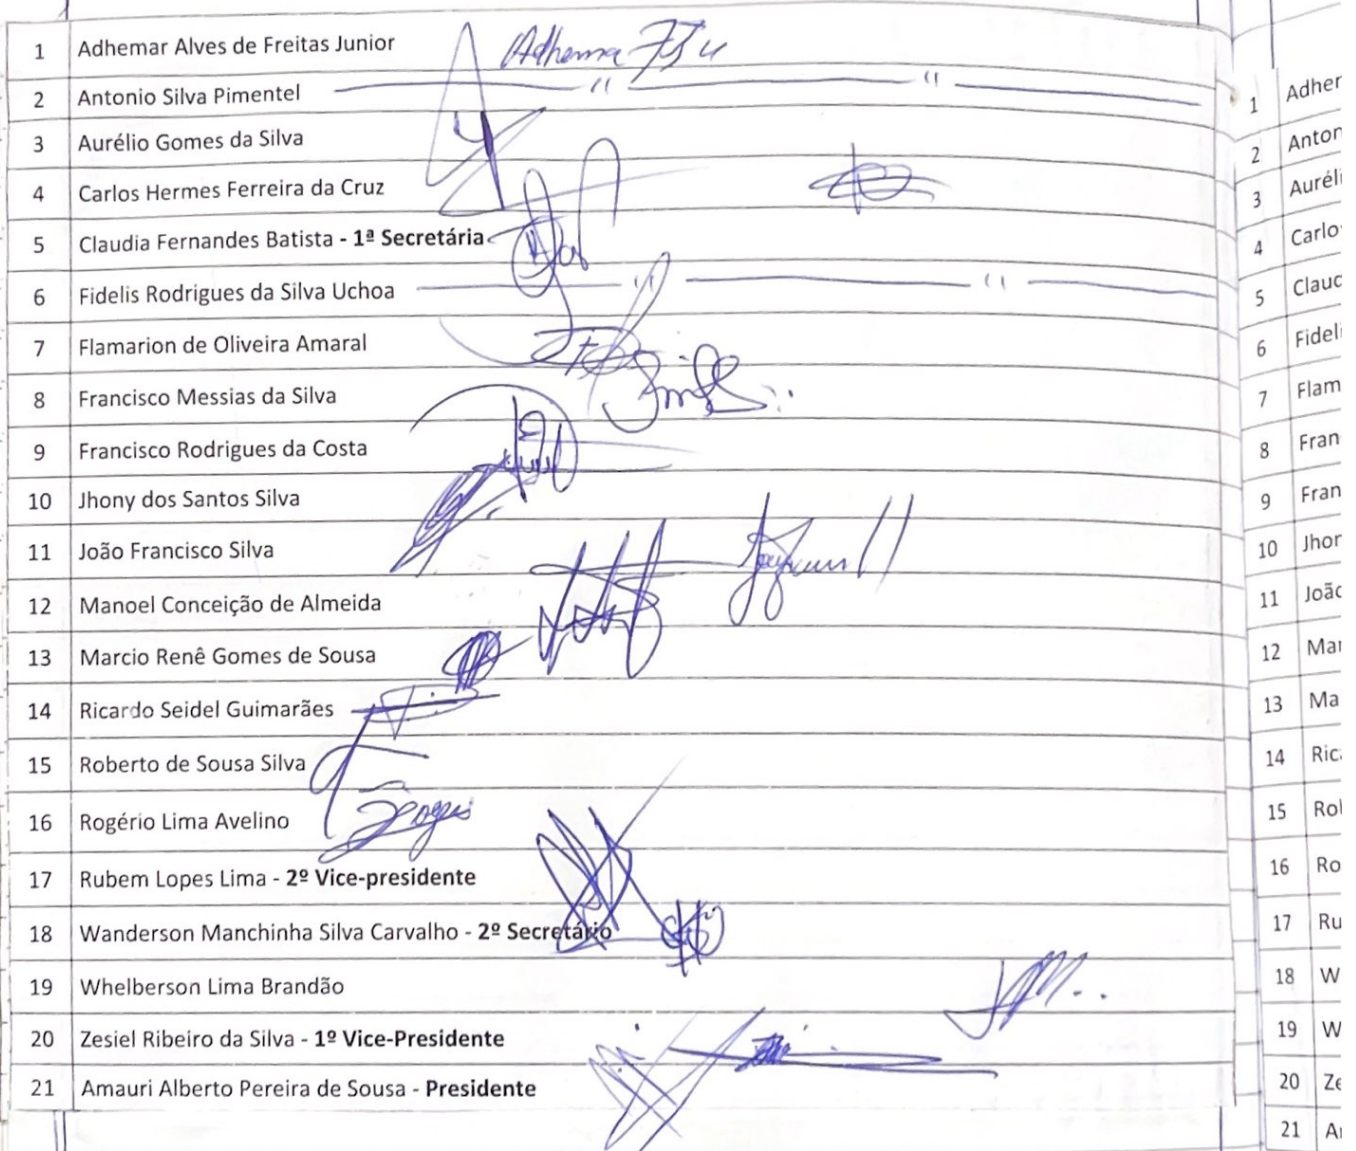 1 Adhemar Alves de Freitas Junior Adhema
2 Antonio Silva Pimentel
3 Aurélio Gomes da Silva
4 Carlos Hermes Ferreira da Cruz
5 Claudia Fernandes Batista - 1ª Secretária
6 Fidelis Rodrigues da Silva Uchoa
7 Flamarion de Oliveira Amaral
8 Francisco Messias da Silva
9 Francisco Rodrigues da Costa
10 Jhony dos Santos Silva
11 João Francisco Silva
12 Manoel Conceição de Almeida
13 Marcio Renê Gomes de Sousa
14 Ricardo Seidel Guimarães
15 Roberto de Sousa Silva
16 Rogério Lima Avelino
17 Rubem Lopes Lima - 2º Vice-presidente
18 Wanderson Manchinha Silva Carvalho - 2º Secretário
19 Whelberson Lima Brandão
20 Zesiel Ribeiro da Silva - 1º Vice-Presidente
21 Amauri Alberto Pereira de Sousa - Presidente
1 Adher
2 Anton
3 Auréli
4 Carlo
5 Claud
6 Fideli
7 Flam
8 Fran
9 Fran
10 Jhor
11 João
12 Mar
13 Ma
14 Ric
15 Rol
16 Ro
17 Ru
18 W
19 W
20 Ze
21 A